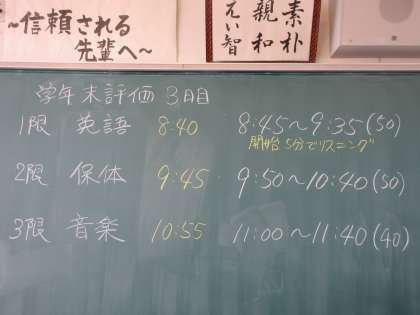 ~信頼される
先輩へ~
素朴
親和
えい智
学年末評価 3日目
1限 英語 8:40 8:45~9:35(50)
開始5分でリスニング
2限 保体 9:45 9:50~10:40(50)
3限 音楽 10:55 11:00~11:40(40)